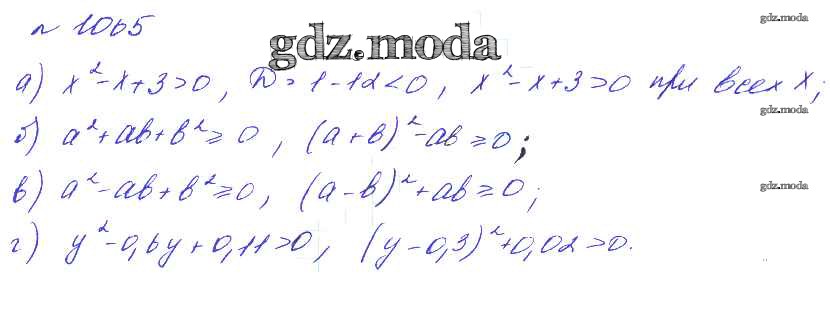 № 1065
gdz.moda
gdz.moda
а) x²-x+3>0, D=1-12<0, x²-x+3>0 при всех x;
gdz.moda
б) a²+ab+b²≥0, (a+b)²-ab≥0;
в) a²-ab+b²≥0, (a-b)²+ab≥0;
gdz.moda
г) y²-0,6y+0,11>0, (y-0,3)²+0,02>0.